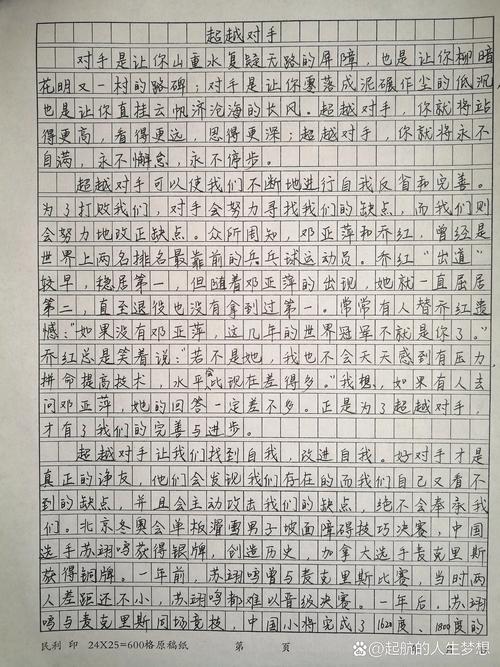 超越对手
对手是让你山重水复疑无路的屏障，也是让你柳暗
花明又一村的路碑；对手是让你零落成泥碾作尘的低沉，
也是让你直挂云帆济沧海的长风。超越对手，你就将站
得更高，看得更远，思得更深；超越对手，你就将永不
自满，永不懈怠，永不停步。
超越对手可以使我们不断地进行自我反省和完善。
为了打败我们，对手会努力寻找我们的缺点，而我们则
会努力地改正缺点。众所周知，邓亚萍和乔红，曾经是
世界上两名排名最靠前的乒乓球运动员。乔红“出道”
较早，稳居第一，但随着邓亚萍的出现，她就一直屈居
第二，直至退役也没有拿到过第一。常常有人替乔红遗
憾：“如果没有邓亚萍，这几年的世界冠军不就是你了。”
乔红总是笑着说：“若不是她，我也不会天天感到有压力，
拼命提高技术，水平会比现在差得多。”我想，如果有人去
问邓亚萍，她的回答一定差不多。正是为了超越对手，
才有了我们的完善与进步。
超越对手让我们找到自我，改进自我。好对手才是
真正的诤友，他们会发现我们存在的而我们自己又看不
到的缺点，并且会主动攻击我们的缺点，绝不会奉承我
们。北京冬奥会单板滑雪男子坡面障碍技巧决赛，中国
选手苏翊鸣获得银牌，创造历史，加拿大选手麦克里斯
获得铜牌。一年前，苏翊鸣曾与麦克里斯比赛，当时两
人差距还不小，苏翊鸣都难以晋级决赛。一年后，苏翊
鸣与麦克里斯同场竞技，中国小将完成了1620度、1800度的
民利 印 24X25=600格原稿纸 第 頁
@起航的人生梦想